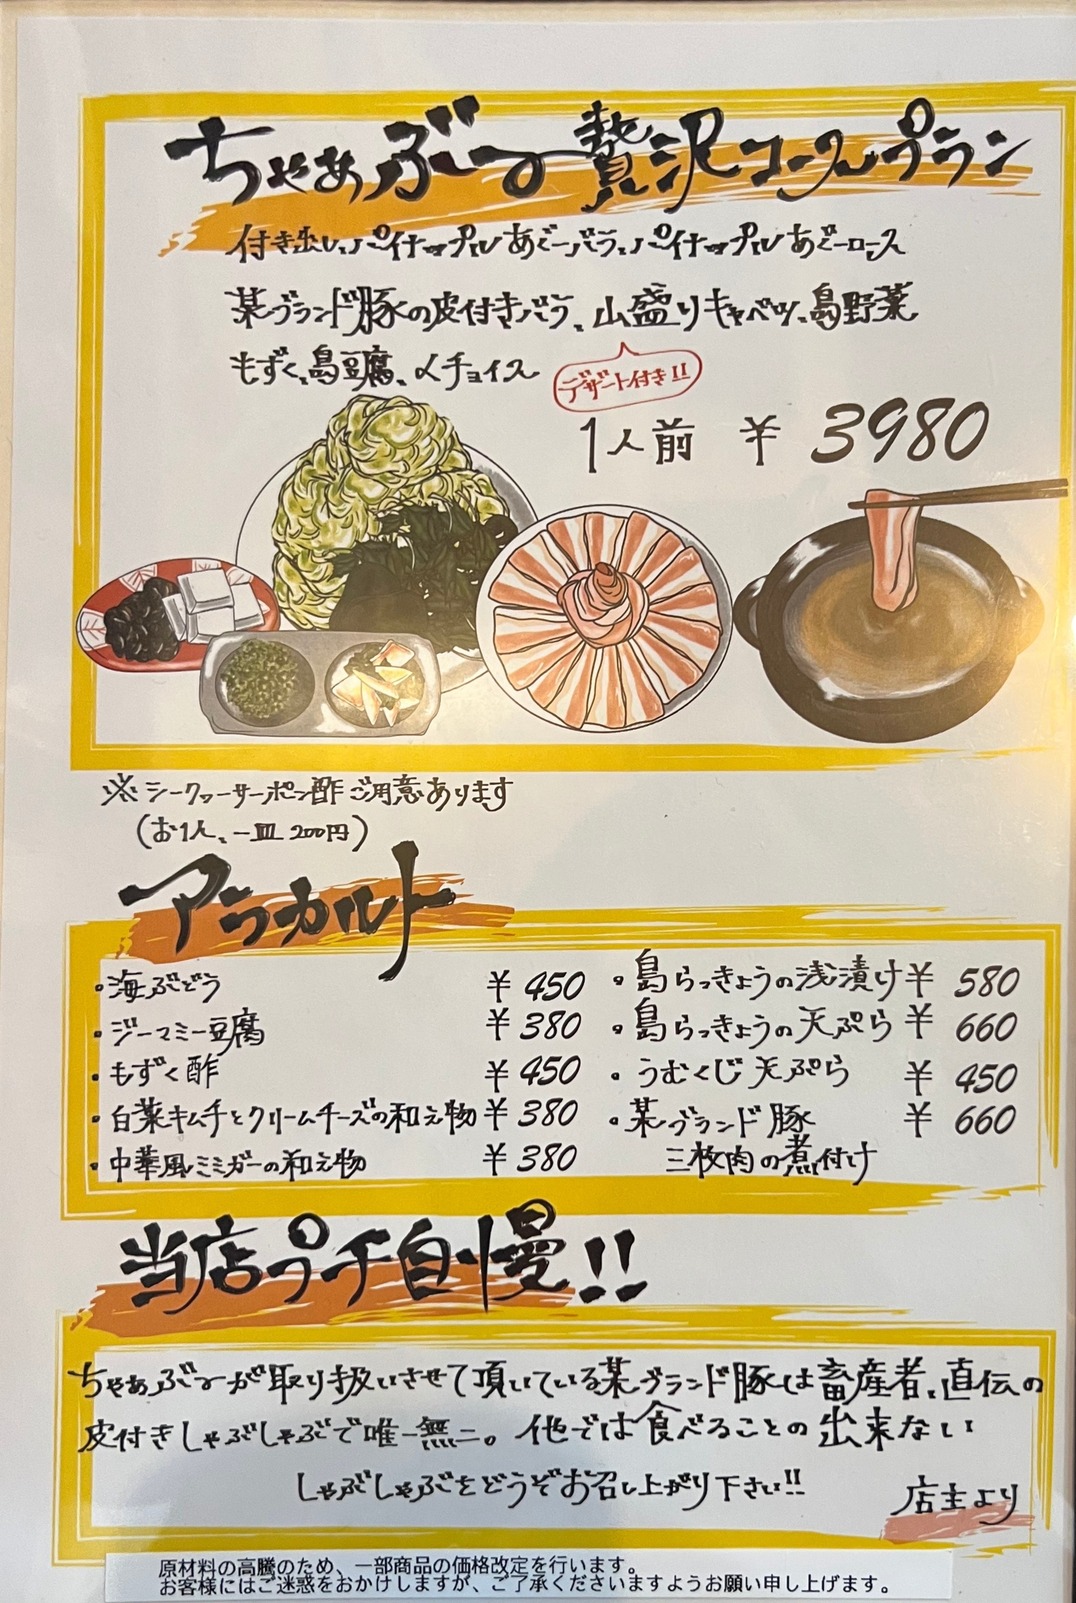 ちゃあぶー贅沢コースプラン
付き出し、パイナップルあぐーバラ、パイナップルあぐーロース
某ブランド豚の皮付きバラ、山盛りキャベツ、島野菜
もずく、島豆腐、〆チョイス
デザート付き!!
1人前 ¥3980
※シークヮーサーポン酢ご用意あります
(お1人、一皿200円)
アラカルト
・海ぶどう ¥450
・ジーマミー豆腐 ¥380
・もずく酢 ¥450
・白菜キムチとクリームチーズの和え物 ¥380
・中華風ミミガーの和え物 ¥380
・島らっきょうの浅漬け ¥580
・島らっきょうの天ぷら ¥660
・うむくじ天ぷら ¥450
・某ブランド豚 ¥660
三枚肉の煮付け
当店プチ自慢!!
ちゃあぶーが取り扱いさせて頂いている某ブランド豚は畜産者、直伝の
皮付きしゃぶしゃぶで唯一無二。他では食べることの出来ない
しゃぶしゃぶをどうぞお召し上がり下さい!!
店主より
原材料の高騰のため、一部商品の価格改定を行います。
お客様にはご迷惑をおかけしますが、ご了承くださいますようお願い申し上げます。